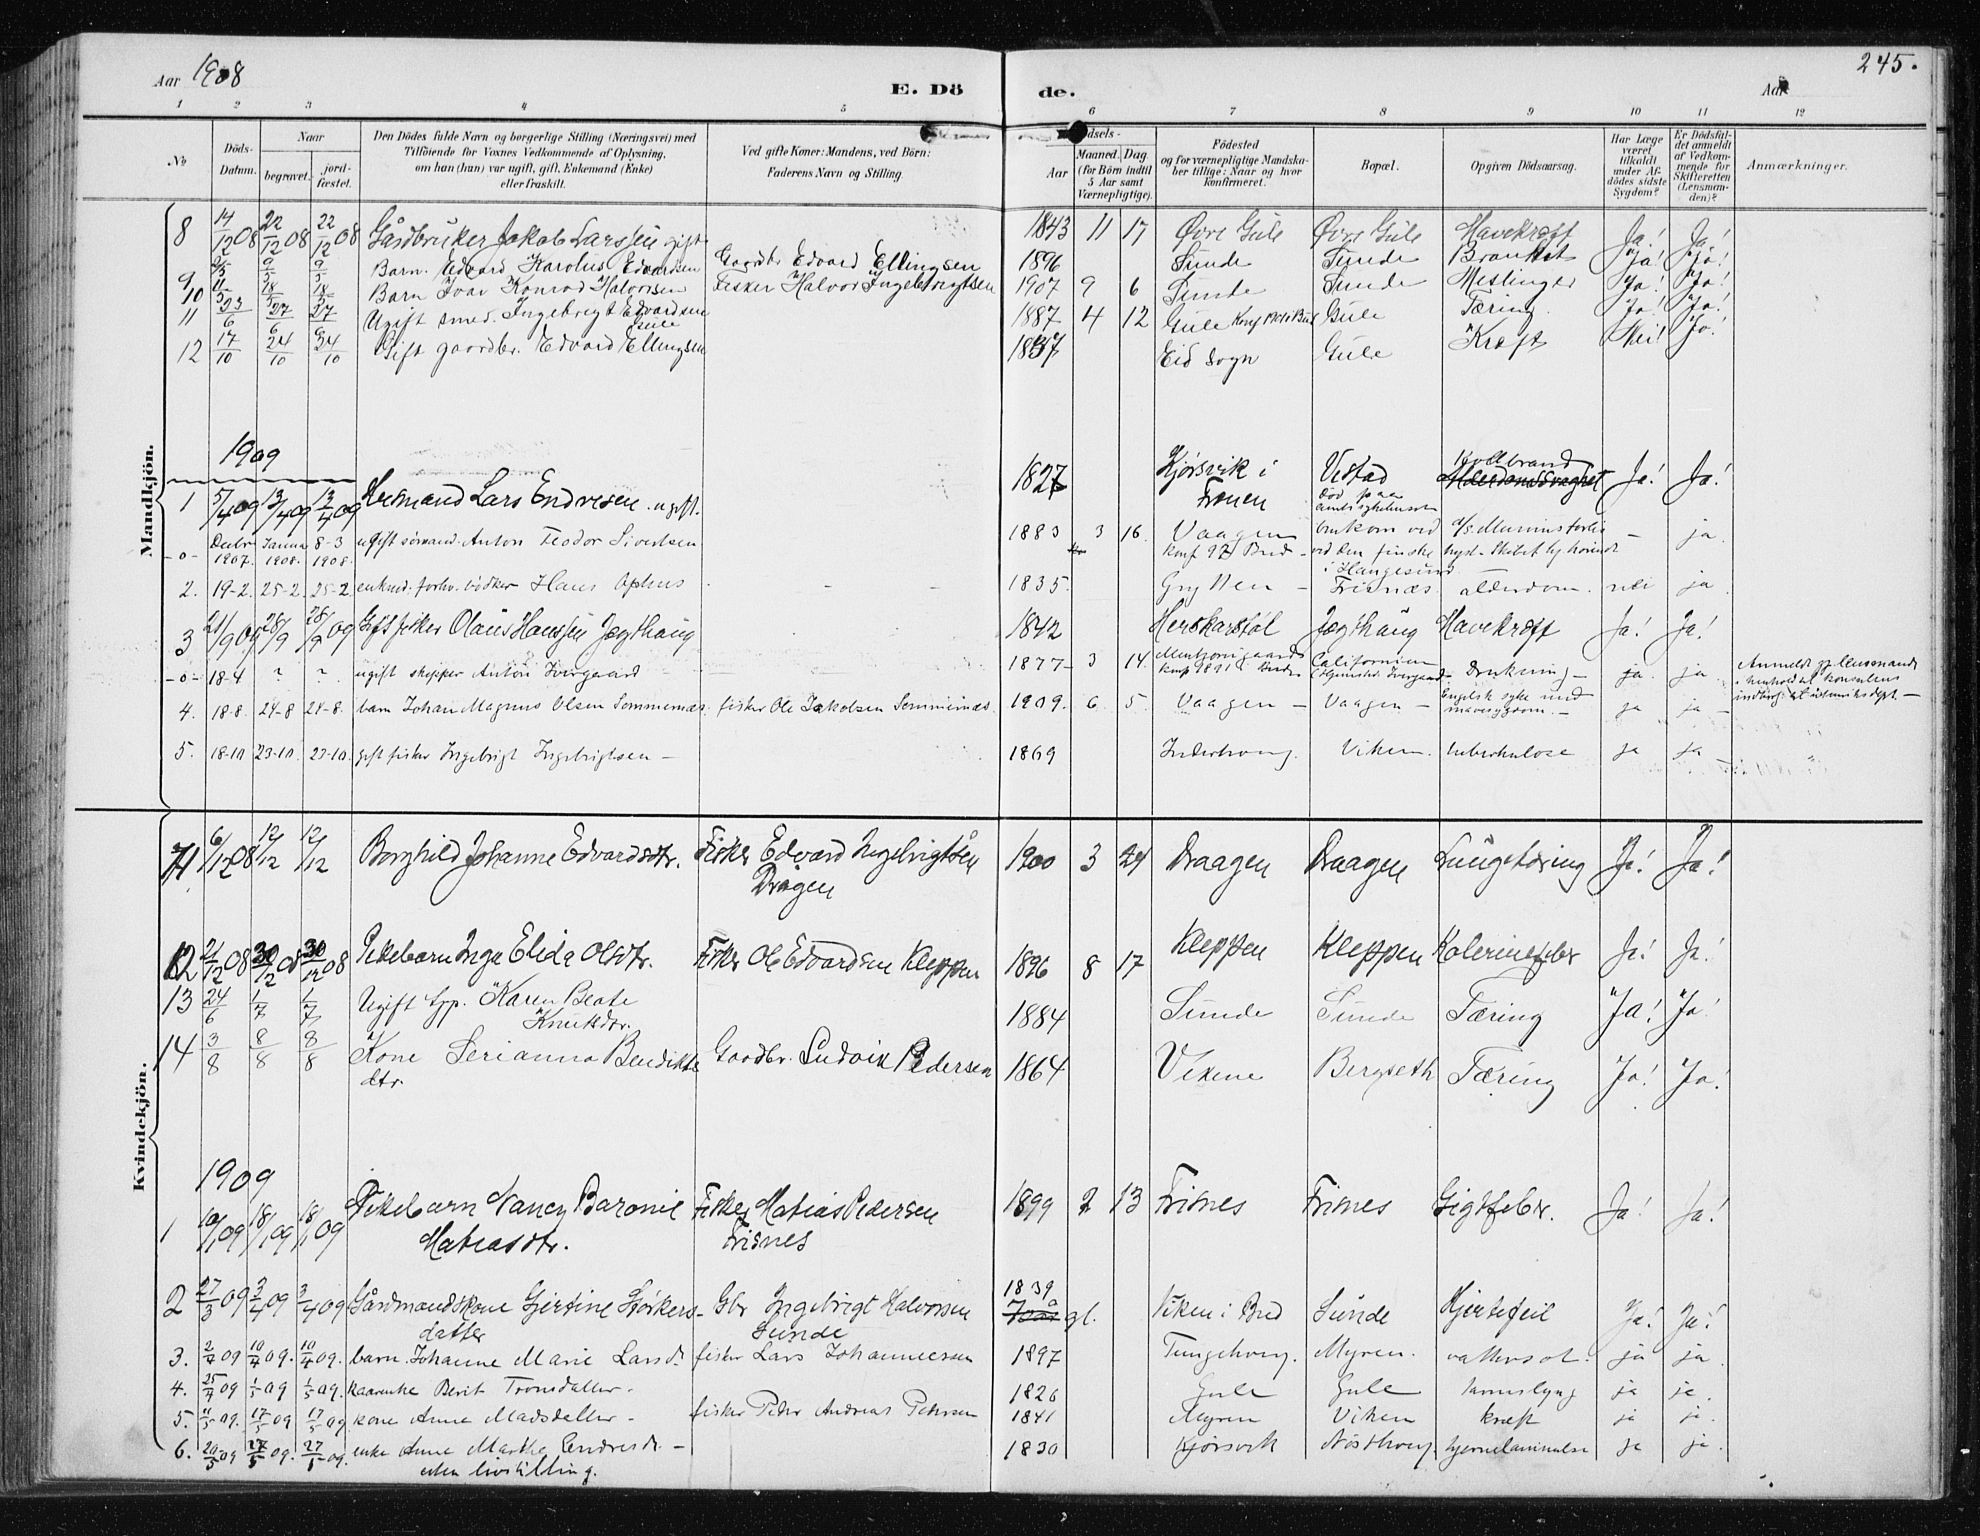 Aar 1908
E. Dö
de.
Aar
245.
1 2 3 4 5 6 7 8 9 10 11 12
No
Döds-Datum.
Naar
begravet.
jord-fæstet.
Den Dödes fulde Navn og borgerlige Stilling (Næringsvei) med
Tilföiende for Voxnes Vedkommende af Oplysning,
om han (hun) var ugift, gift, Enkemand (Enke)
eller fraskilt.
Ved gifte Koner: Mandens, ved Börn:
Faderens Navn og Stilling.
Aar
Maaned. Dag.
(for Börn indtil
5 Aar samt
Værnepligtige).
Födested
og for værnepligtige Mandska-
ber tillige: Naar og hvor
konfirmeret.
Bopæl.
Opgiven Dödsaarsag.
Har Læge
været
tilkaldt
under Af-
dödes sidste
Sygdom?
Er Dödsfal-
det anmeldt
af Vedkom-
mende for
Skifteretten
(Lensman-
den)?
Anmærkninger.
Mandkjön.
8 14/12 08 22/12 08 22/12 08 Gårdbruker Jakob Larssen gift 1843 11 17 Øvre Gule Øvre Gule Mavekræft Ja! Ja!
Barn. Edvard Karolus Edvardsen Gaardbr Edvard Ellingsen 1896 Sunde Sunde Ja! Ja!
9
10 Barn Ivar Konrad Halvorsen Fisker Halvor Ingebrigtsen 1907 9 6 Sunde Sunde Meslinger Ja! Ja!
11 23/6 27/6 27/6 Ugift smed. Ingebrigt Edvardsen 1887 4 12 Gule Gule Tæring Ja! Ja!
Gule
12 17/10 24/10 24/10 Gift gaardbr. Edvard Ellingsen 1837 Eid sogn Gule Kræft Nei! Ja!
1909
1 5/4 09 13/4 09 13/4 09 Lars Endresen ugift. 1827 Kjørsvik i Vestad Koldbrand Ja! Ja!
Frænen død paa
amtssykehuset
-o- Decbr 1907. Januar 1908. 8-3 1908. ugift sømand Anton Teodor Sivertsen 1883 3 16. Vaagen omkom ved - ja
konf 97 Bud - ved den finske
i Hangesund
2. 19-2. 25-2. 25-2. enkmd. forhv. bødker Hans Ophus - - 1835. Grytten - Frisnæs alderdom. nei ja
3 21/9 09 28/9 28/9 09 Gift fisker Olaus Hanssen Jægthaug 1842 Herskarstøl Jægthaug Mavekræft Ja! Ja!
-o- 18-4 ? ? ugift skipper Anton Ivergaard 1877 - 3 14. Californien Drukning - ja ja
konf 1891 Bud
4. 18-8. 24-8 24-8. barn Johan Magnus Olsen Sommernæs. fisker Ole Jakobsen Sommernæs. 1909. 6. 5. Vaagen - Vaagen - Engelsk syke med
mavesygdom. - ja ja -
5. 18-10 23-10. 23-10. gift fisker Ingebrigt Ingebrigtsen - 1869 Inderhaug. Viken. tuberkulose ja ja
Kvindekjön.
11 6/12 08 12/12 12/12 Borghild Johanne Edvardsdtr. Fisker Edvard Ingebrigtsen 1900 3 24 Draagen Draagen Lungetæring Ja! Ja!
Drågen
12 21/12 08 30/12 08 30/12 08 Pikebarn Inga Elida Olsdtr. Fisker Ole Edvardsen Kleppen 1896 8 17 Kleppen Kleppen Ja! Ja!
13 24/6 1/7 1/7 Ugift tjp. Karen Beate 1884 Sunde Sunde Tæring Ja! Ja!
Knutsdtr.
14 3/8 8/8 8/8 Kone Serianna Bendikts Gaardbr. Ludvik Pedersen 1864 Vikene Bergseth Tæring Ja! Ja!
dtr.
1909
1 10/1 09 18/1 09 18/1 09 Pikebarn Nancy Baronie Fisker Matias Pedersen 1899 2 13 Frisnes Frisnes Gigtfeber. Ja! Ja!
Matiasdtr. Frisnes
2 27/3 09 3/4 09 3/4 09 Gårdmandskone Gjertine Størkers- Gbr Ingebrigt Halvorsen 1839 Viken i Bud Sunde Hjertefeil Ja! Ja!
datter Sunde 70 år gl.
3. 2/4 09 10/4 09. 10/4 09. barn Johanne Marie Larsd. fisker Lars Johannessen 1897 Tungehaug. Myren. vattersot. ja ja.
4. 25/4 09 1/5 09 1/5 09. kaarenke Berit Tronsdatter. 1826 Gule Gule ja ja.
5. 11/5 09. 17/5 09 17/5 09. kone Anne Madsdatter - fisker Peder Andreas Petersen 1841 Myren Viken kræft ja ja.
6. 20/5 09 27/5 09. 27/5 09. enke Anne Marthe Endresd. - 1830 Kjørsvik Nøsthaug. hjernelammelse ja ja.
uten livsstilling.